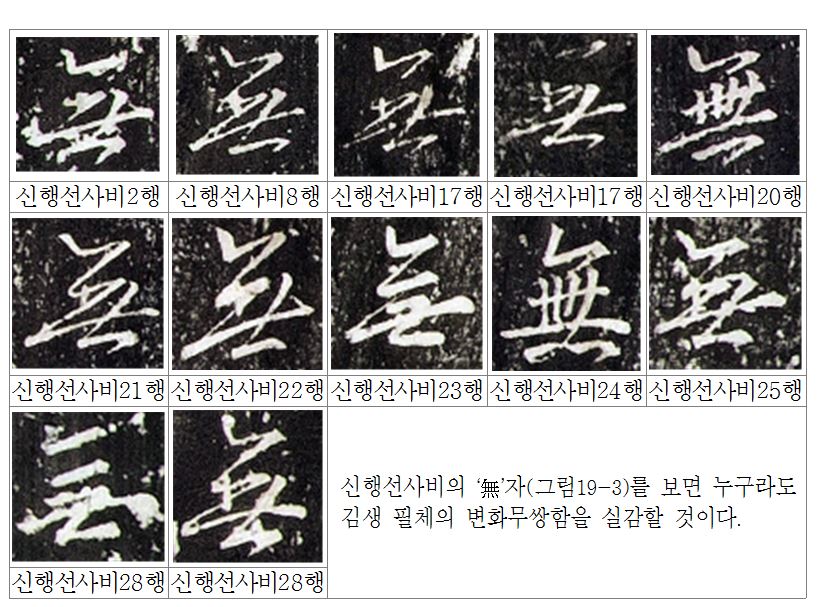 無 無 無 無 無
신행선사비2행 신행선사비8행 신행선사비17행 신행선사비17행 신행선사비20행
無 無 無 無 無
신행선사비21행 신행선사비22행 신행선사비23행 신행선사비24행 신행선사비25행
無 無
신행선사비의 ‘無’자(그림19-3)를 보면 누구라도
김생 필체의 변화무쌍함을 실감할 것이다.
신행선사비28행 신행선사비28행